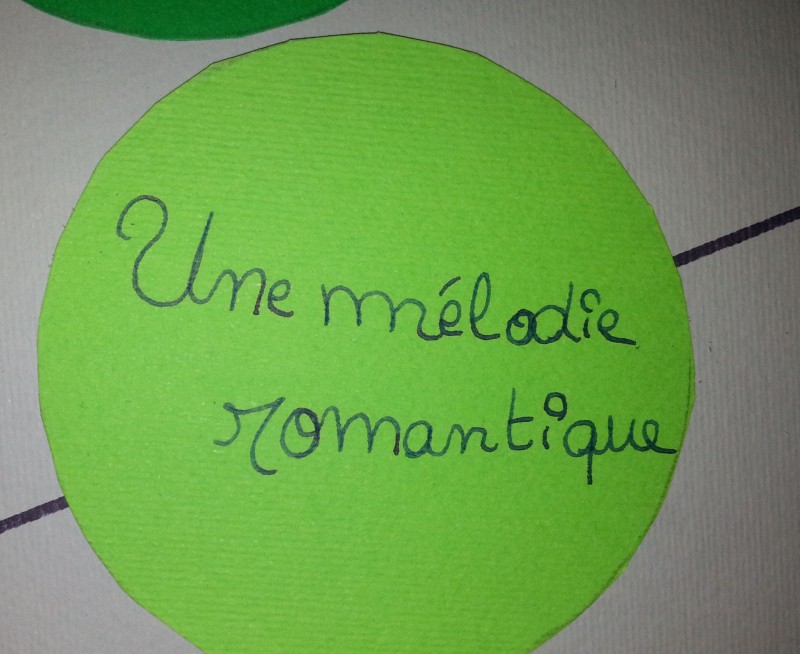 Une mélodie
romantique